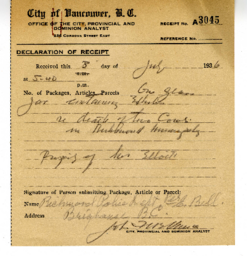 City of Vancouver, B. C.
OFFICE OF THE CITY, PROVINCIAL AND
DOMINION ANALYST
RECEIPT No. A3045
REFERENCE No.
DECLARATION OF RECEIPT
Received this 3rd day of July 1936
at 5:40 P.M.
No. of Packages, Articles, Parcels One glass
jar containing
re death of this
in Richmond Municipality
Signature of Person submitting Package, Article or Parcel:
Name Richmond Police Dept.
Address Brighouse B.C.
CITY, PROVINCIAL AND DOMINION ANALYST